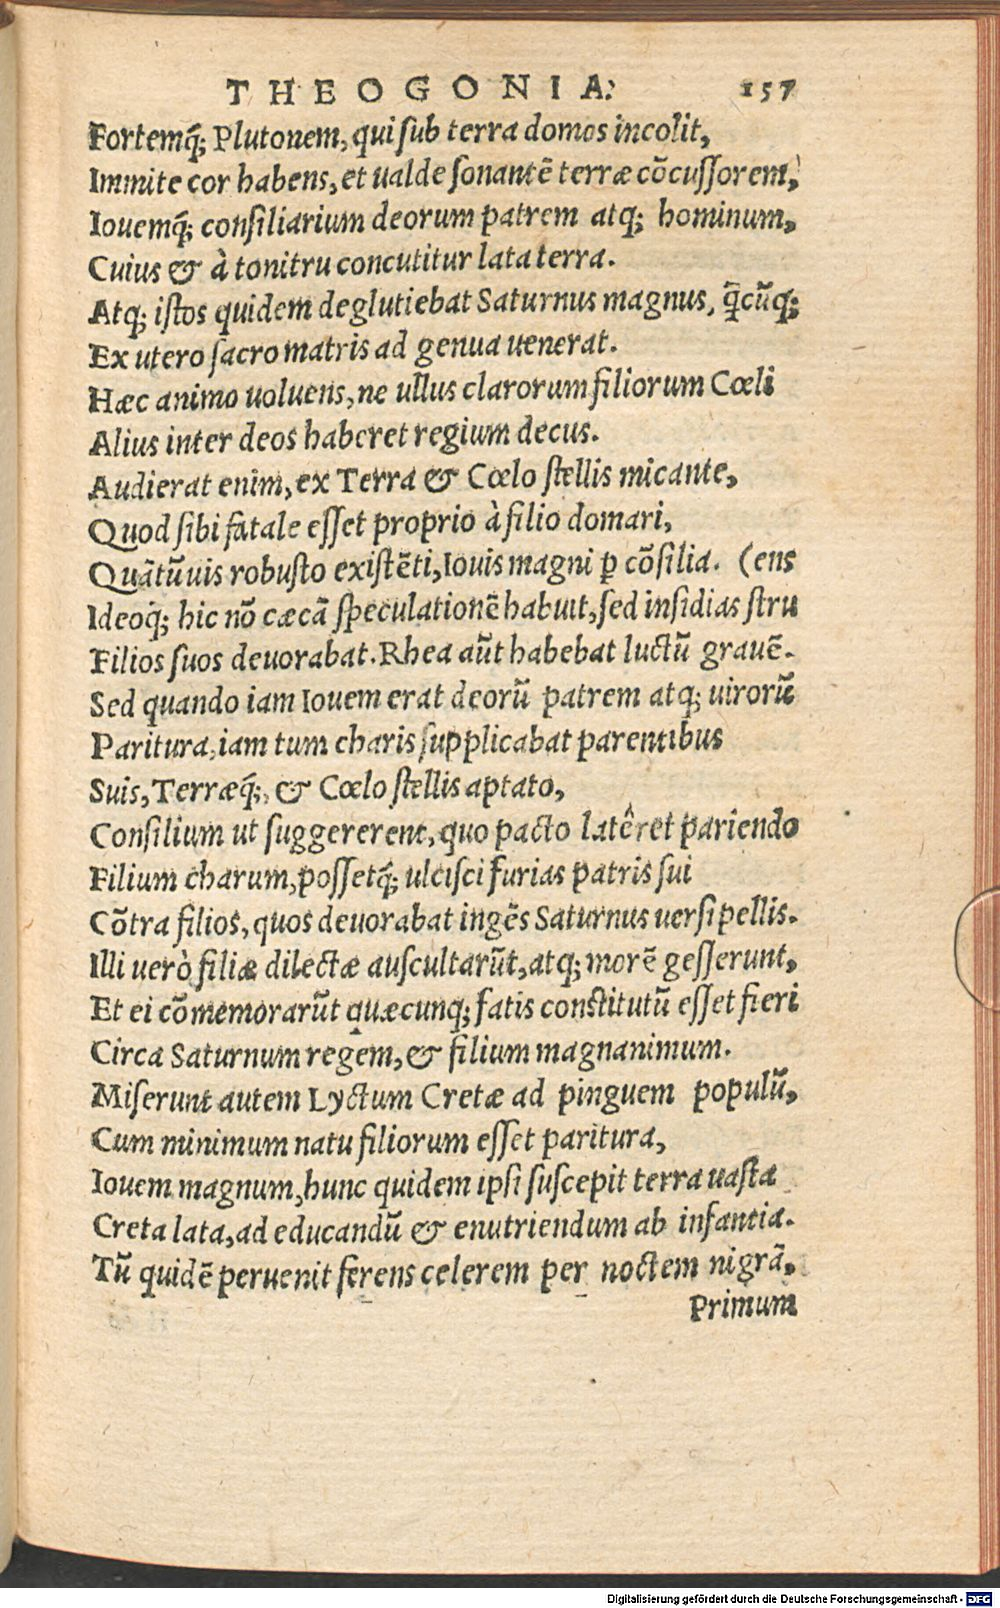 THEOGONIA. 157
Fortemq́; Plutonem, qui sub terra domos incolit,
Immite cor habens, et ualde sonantẽ terræ cõcussorem,
Iouemq́; consiliarium deorum patrem atq; hominum,
Cuius & à tonitru concutitur lata terra.
Atq; istos quidem deglutiebat Saturnus magnus, q̃cũq;
Ex utero sacro matris ad genua uenerat.
Hæc animo uoluens, ne ullus clarorum filiorum Cœli
Alius inter deos haberet regium decus.
Audierat enim, ex Terra & Cœlo stellis micante,
Quod sibi fatale esset proprio à filio domari,
Quãtũuis robusto existẽti, Iouis magni ꝑ cõsilia. (ens
Ideoq́; hic nõ cæcã speculationẽ habuit, sed insidias stru
Filios suos deuorabat. Rhea aũt habebat luctũ grauẽ.
Sed quando iam Iouem erat deorũ patrem atq; uirorũ
Paritura, iam tum charis supplicabat parentibus
Suis, Terræq́;, & Cœlo stellis aptato,
Consilium ut suggererent, quo pacto latêret pariendo
Filium charum, possetq́; ulcisci furias patris sui
Cõtra filios, quos deuorabat ingẽs Saturnus uersipellis.
Illi uerò filiæ dilectæ auscultarũt, atq; morẽ gesserunt,
Et ei cõmemorarũt quæcunq; fatis constitutũ esset fieri
Circa Saturnum regem, & filium magnanimum.
Miserunt autem Lyctum Cretæ ad pinguem populũ,
Cum minimum natu filiorum esset paritura,
Iouem magnum, hunc quidem ipsi suscepit terra uasta
Creta lata, ad educandũ & enutriendum ab infantia.
Tũ quidẽ peruenit ferens celerem per noctem nigrã,
Primum
Digitalisierung gefördert durch die Deutsche Forschungsgemeinschaft - DFG